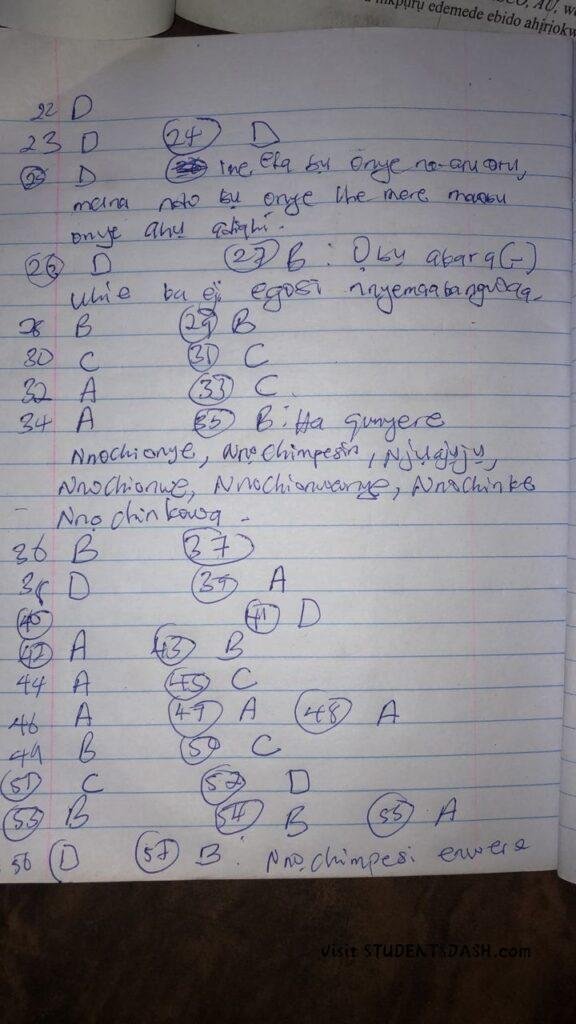 CO, AU, w
mkpụrụ edemede ebido ahịrịokw
22 D
23 D 24 D
25 D Ime, eta bụ onye na-arụ ọrụ,
mana nato bụ onye ihe mere maọbụ
onye ahụ adịghị.
26 D 27 B : Ọ bụ abara (-)
ba eji egosi
28 B 29 B
30 C 31 C
32 A 33 C.
34 A 35 B : Ha gunyere
Nnọchionye, Nnọchimpesin, Njụajụjụ,
Nnochionwe, Nnochionwonye, Nnochinke
Nnọchinkowa.
36 B 37
38 D 39 A
40 41 D
42 A 43 B
44 A 45 C
46 A 47 A 48 A
49 B 50 C
51 C 52 D
53 B 54 B 55 A
56 D 57 B : Nnọchimpesi enwere
Visit STUDENTSDASH.com